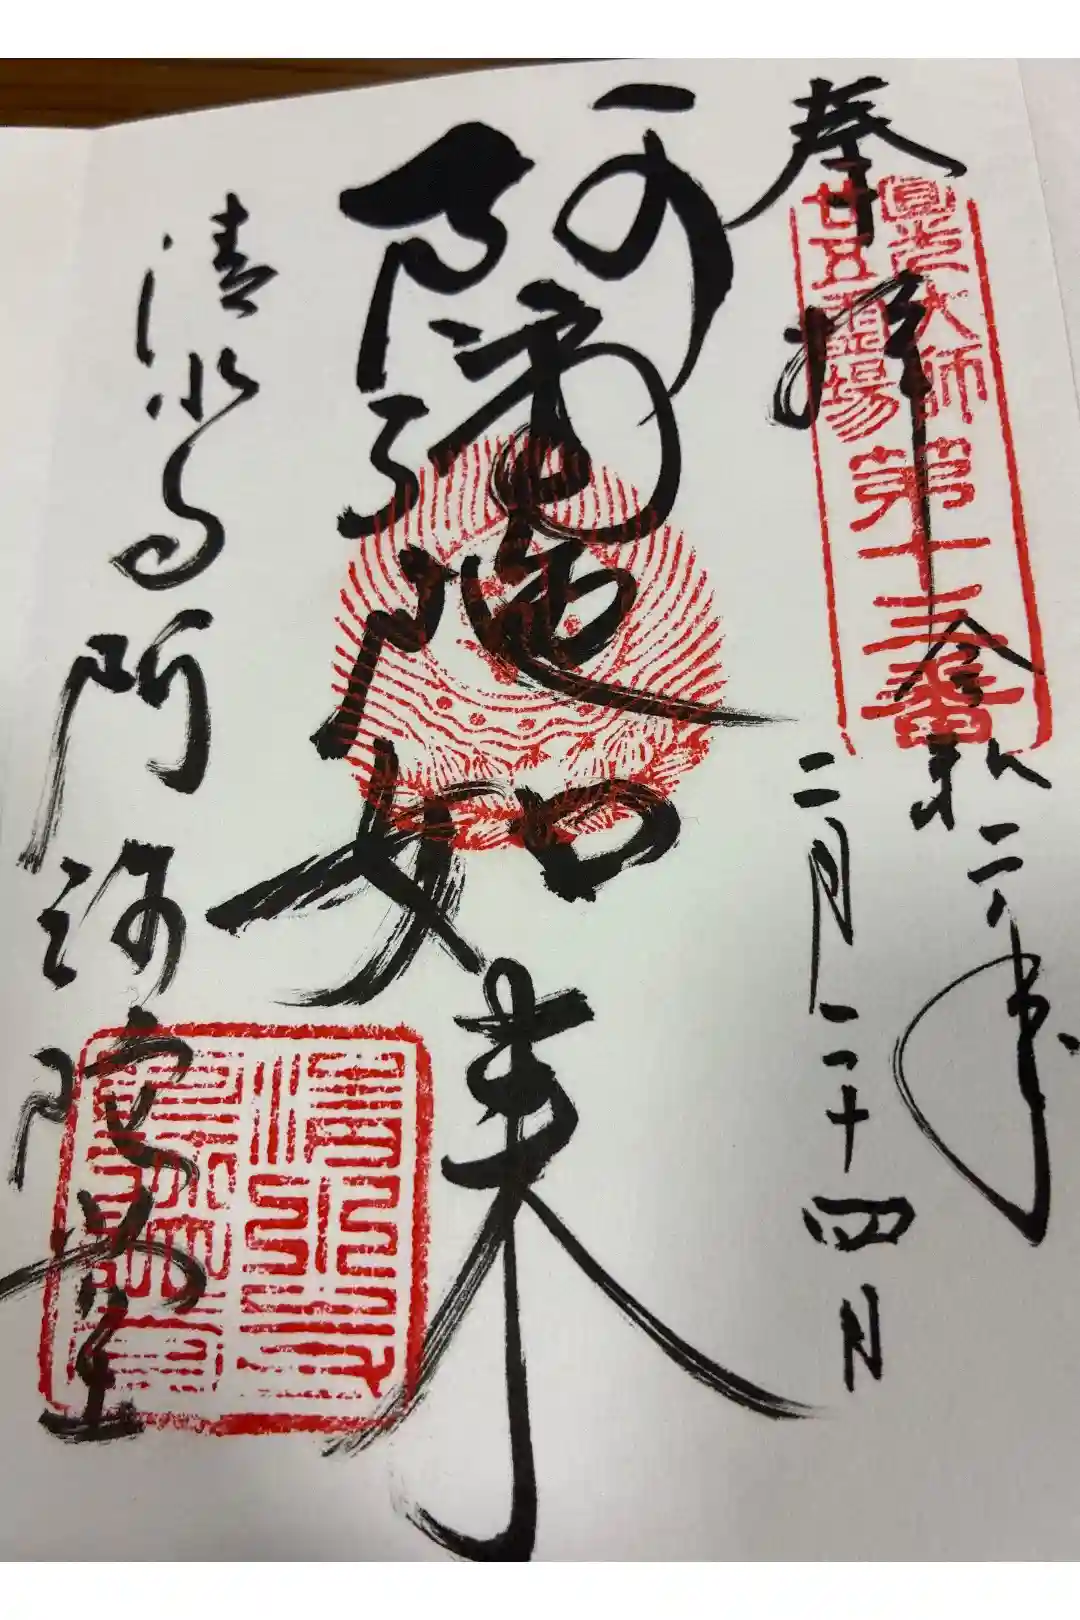 奉拝
圓光大師
廿五霊場
第十三番
令和二年
二月二十四日
阿彌陀如来
清水寺阿弥陀堂